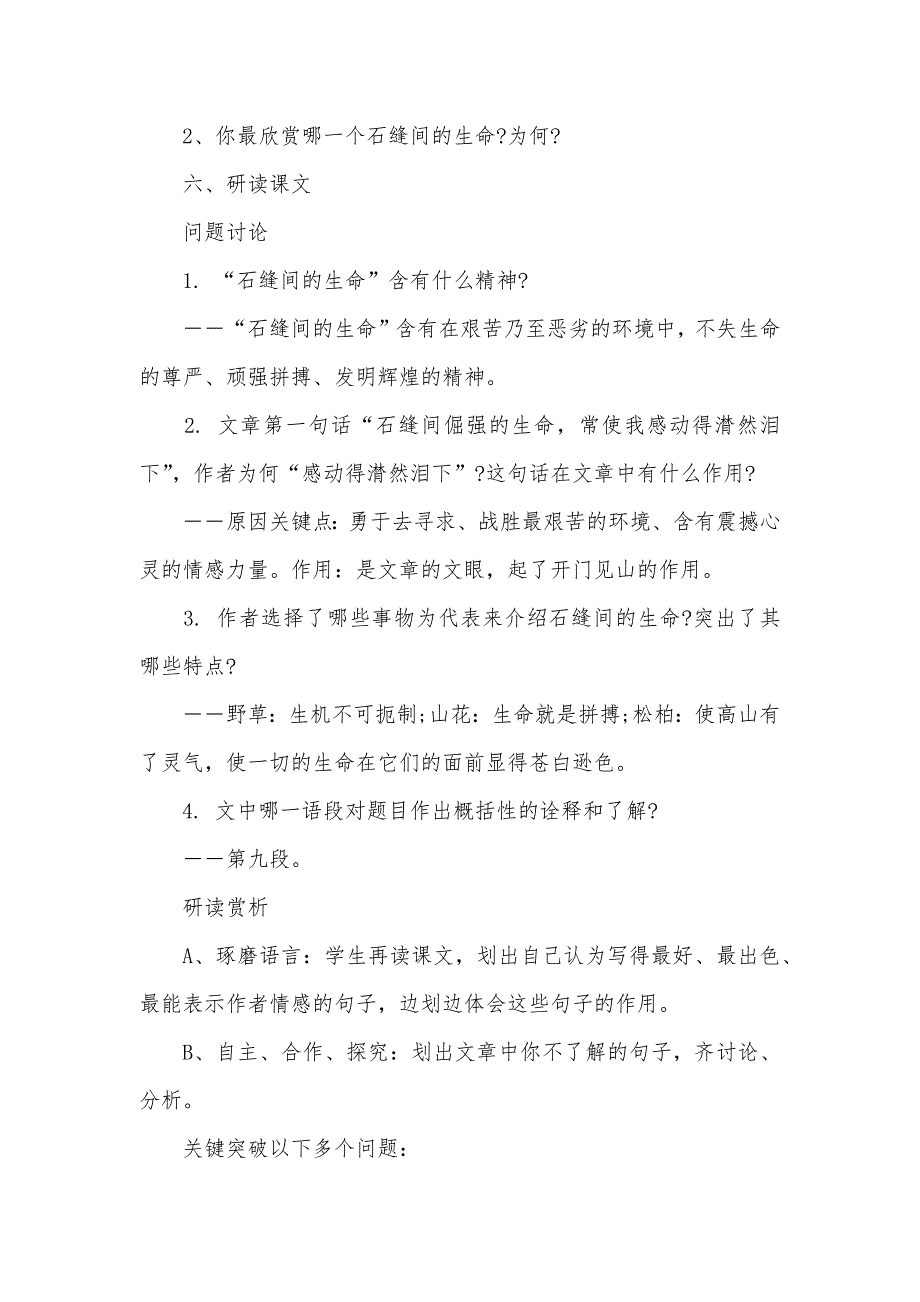 2、你最欣赏哪一个石缝间的生命?为何?
六、研读课文
问题讨论
1. “石缝间的生命”含有什么精神?
――“石缝间的生命”含有在艰苦乃至恶劣的环境中，不失生命
的尊严、顽强拼搏、发明辉煌的精神。
2. 文章第一句话“石缝间倔强的生命，常使我感动得潸然泪
下”，作者为何“感动得潸然泪下”?这句话在文章中有什么作用?
――原因关键点：勇于去寻求、战胜最艰苦的环境、含有震撼心
灵的情感力量。作用：是文章的文眼，起了开门见山的作用。
3. 作者选择了哪些事物为代表来介绍石缝间的生命?突出了其
哪些特点?
――野草：生机不可扼制;山花：生命就是拼搏;松柏：使高山有
了灵气，使一切的生命在它们的面前显得苍白逊色。
4. 文中哪一语段对题目作出概括性的诠释和了解?
――第九段。
研读赏析
A、琢磨语言：学生再读课文，划出自己认为写得最好、最出色、
最能表示作者情感的句子，边划边体会这些句子的作用。
B、自主、合作、探究：划出文章中你不了解的句子，齐讨论、
分析。
关键突破以下多个问题：